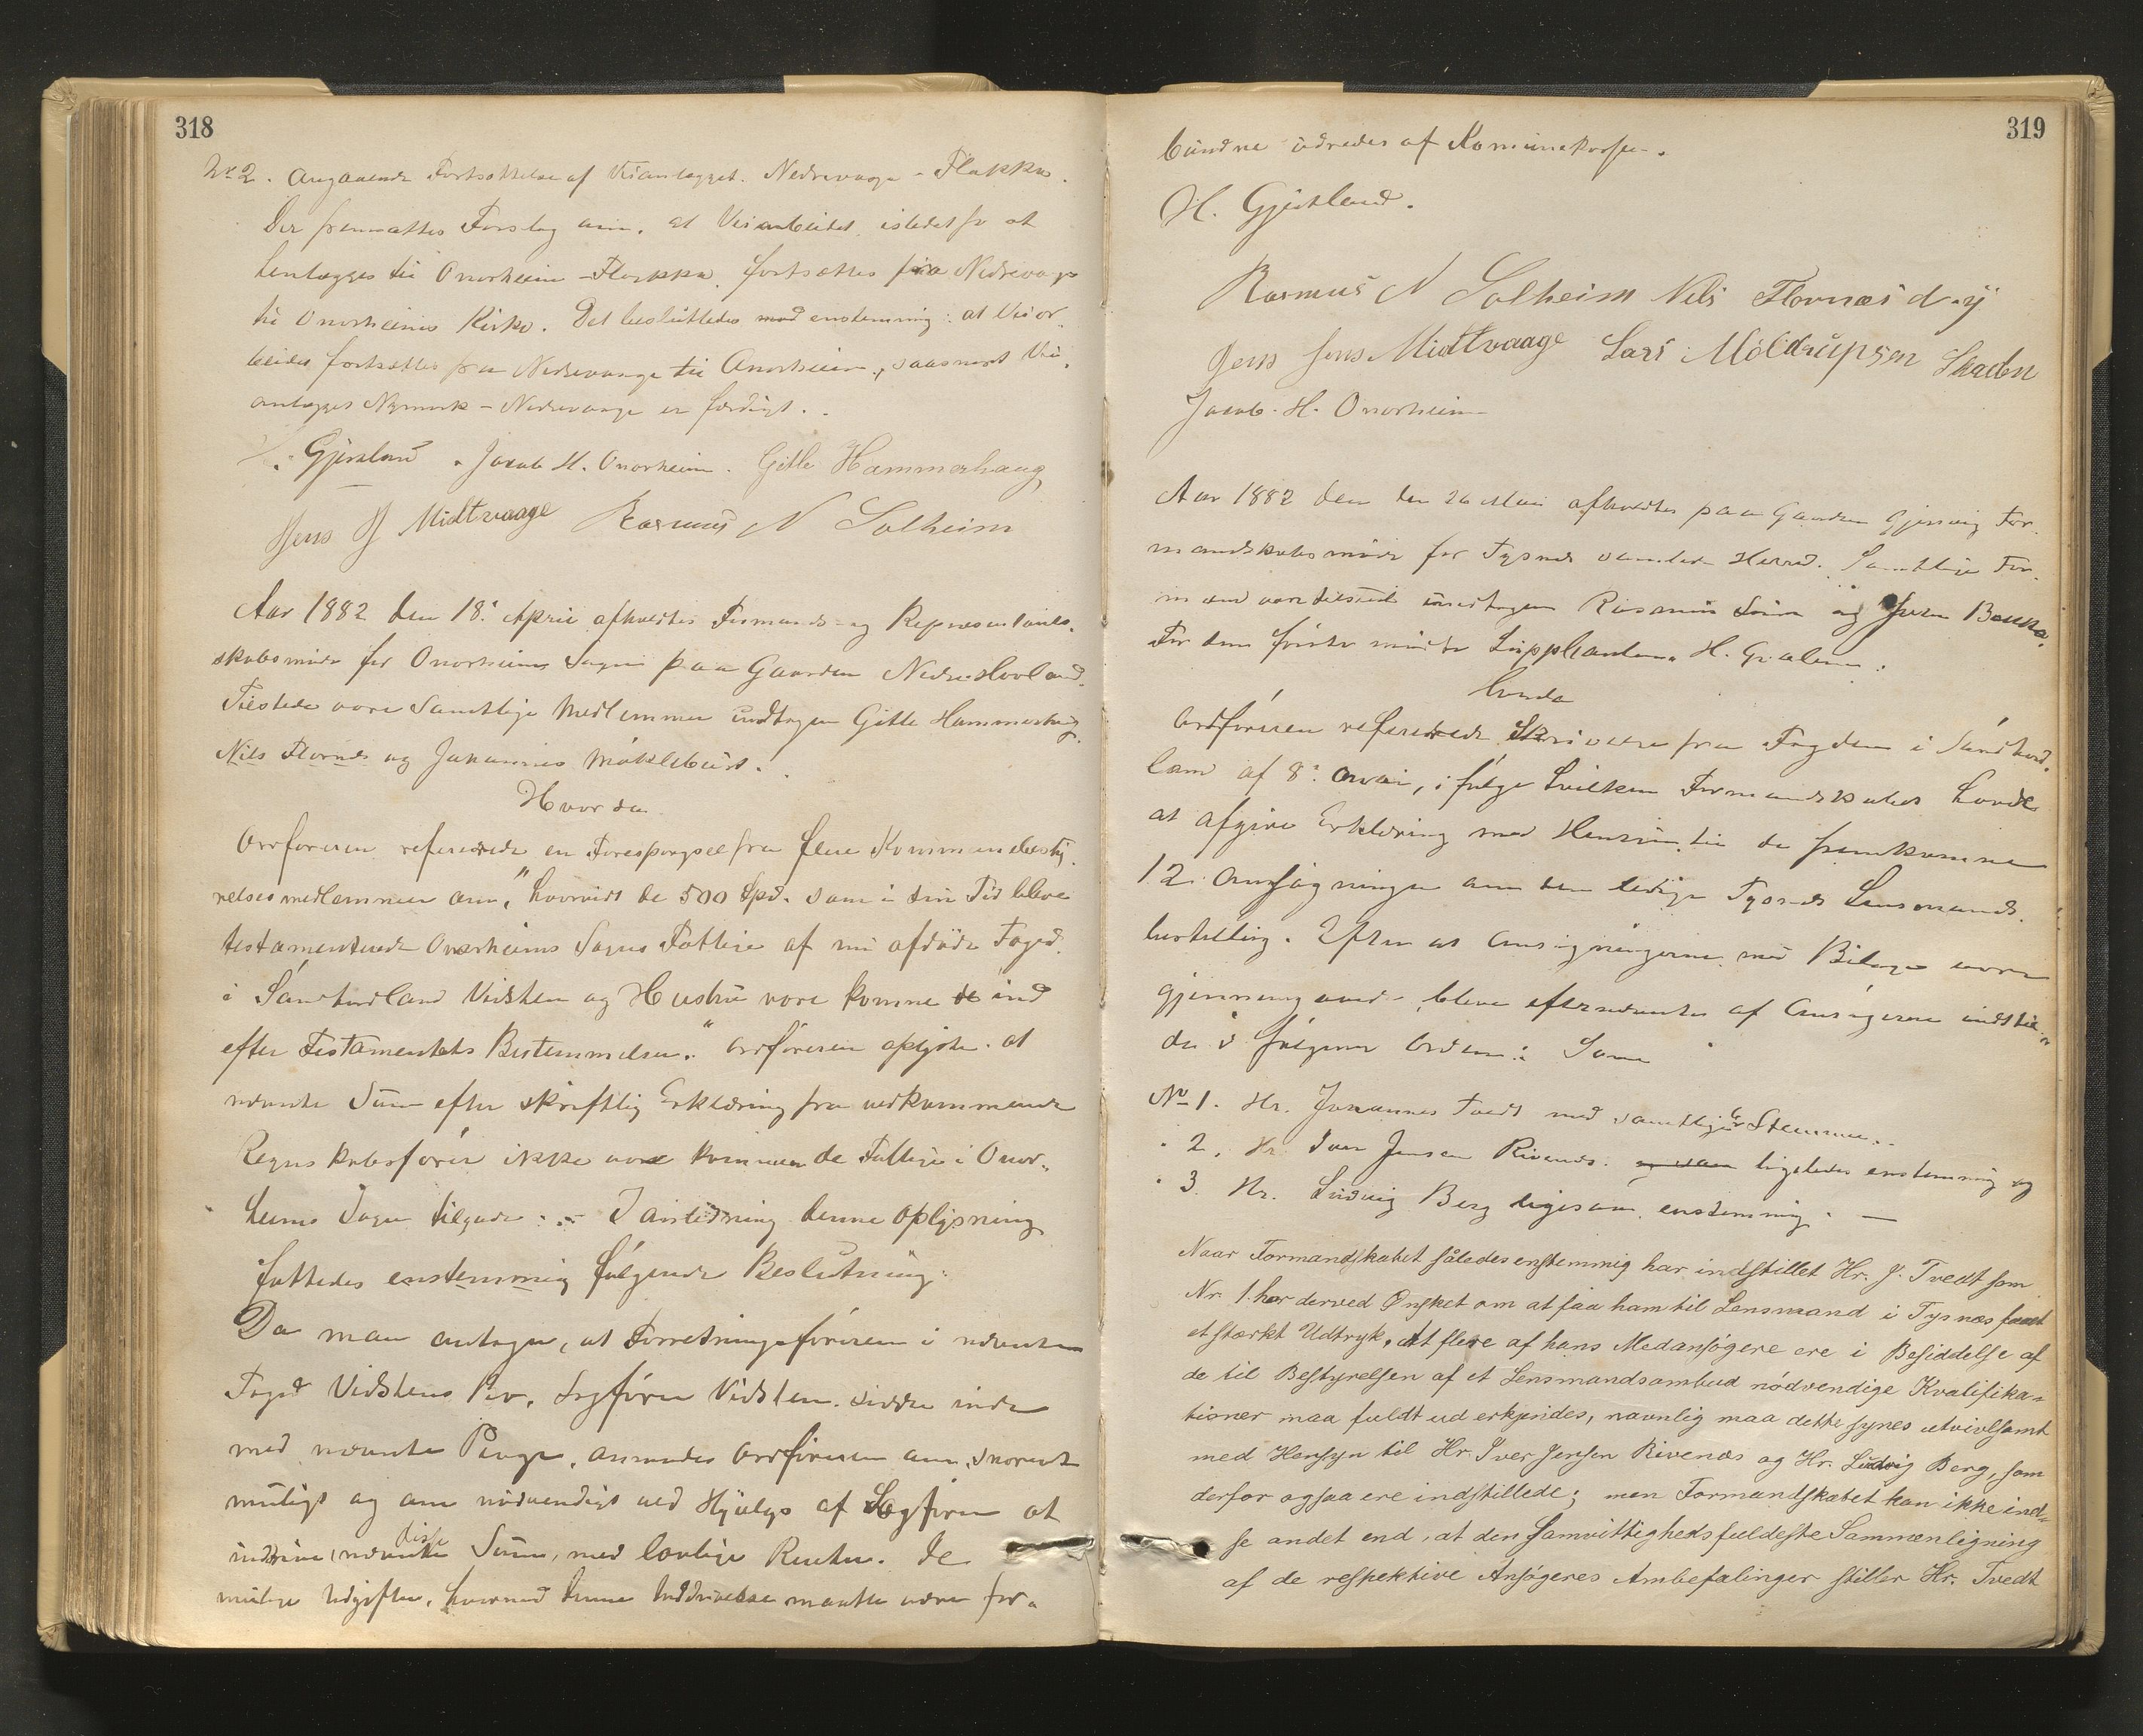 318
No 2. Angaaende Fortsættelse af Veianlægget Nedrevaage - Flakka.
Der fremsattes Forslag om, at Veiarbeidet istedetfor at
henlægges til Onarheim - Flakka fortsættes fra Nedrevaage
til Onarheims Kirke. Det besluttedes med enstemmig: at Veiar-
beidet fortsættes fra Nedrevaage til Onarheim, saasnart Vei-
anlægget Nymark - Nedrevaage er færdigt.
Gjerstand. Jacob H. Onarheim. Gitle Hammerhaug
Jens J Midtvaage Rasmus N Solheim
Aar 1882 den 18. April afholdtes Formands- og Repræsentant-
skabsmøde for Onarheims Sogn paa Gaarden Nedre Hovland.
Tilstede vare Samtlige Medlemmer undtagen Gitle Hammerhaug
Nils Flornes og Johannes Møklebust.
Hvorda
Ordføreren refererede en Forespørgsel fra flere Kommunebesty-
relsesmedlemmer om, "hvorvidt de 500 Spd. som i sin Tid bleve
testamenterede Onarheims Sogns Fattige af nu afdøde Foged
i Søndhordland Vidsten og Hustru vare komne de ind
efter Testamentets Bestemmelser." Ordføreren oplyste at
nævnte Sum efter skriftlig Erklæring fra vedkommende
Regnskabsfører ikke vare kommen de Fattige i Onar-
heims Sogn tilgode. I anledning denne Oplysning
fattedes enstemmig følgende Beslutning:
Da man antager, at Forretningsføreren i nævnte
Foged Vidstens Bo, Sagfører Vidsten sidder inde
med nævnte Penge, anmodes Ordføreren om, snarest
muligt og om nødvendigt ved Hjælp af Sagfører at
inddrive nævnte disse Sum, med lovlige Renter. De
mulige Udgifter, hvormed denne Inddrivelse maatte være for-
319
bundne udredes af Komunekassen.
H. Gjerstand.
Rasmus N Solheim Nils Flornæs d.y
Jens Jens Midtvaage Lars Möldrupsen Skaden
Jacob H. Onarheim
Aar 1882 den 26 Mai afholdtes paa Gaarden Gjersvig For-
mandskabsmøde for Tysnæs samlede Herred. Samtlige For-
mænd vare tilstede undtagen Rasmus og Iver Bauka.
For den første mødte Suppleanten H.
hvorda
Ordføreren refererede Skrivelse fra Fogden i Søndhord-
land af 8. Mai, ifølge hvilken Formandskabet havde
at afgive Erklæring med Hensyn til de fremkomne
12 Ansøgninger om den ledige Tysnes Lensmands-
bestilling. Efter at Ansøgningerne med Bilage vare
gjennemgaaede, bleve efternævnte af Ansøgerne indstil-
de i følgende Orden: Som
No 1. Hr. Johannes Tvedt med samtlige Stemmer.
" 2. Hr. Iver Jensen Rivenes ligeledes enstemmig og
" 3. Hr. Ludvig Berg ligesom enstemmig. —
Naar Formandskabet således enstemmig har indstillet Hr. J. Tvedt som
Nr. 1. har derved Ønsket om at faa ham til Lensmand i Tysnæs faaet
et stærkt Udtryk. At flere af hans Medansøgere ere i Besiddelse af
de til Bestyrelsen af et Lensmandsombud nødvendige Kvalifika-
tioner maa fuldt ud erkjendes, navnlig maa dette synes utvivlsomt
med Hensyn til Hr. Iver Jensen Rivenæs og Hr. Ludvig Berg, som
derfor ogsaa ere indstillede; men Formandskabet kan ikke ind-
se andet end, at den samvittighedsfuldeste Sammenligning
af de respektive Ansøgeres Anbefalinger stiller Hr. Tvedt